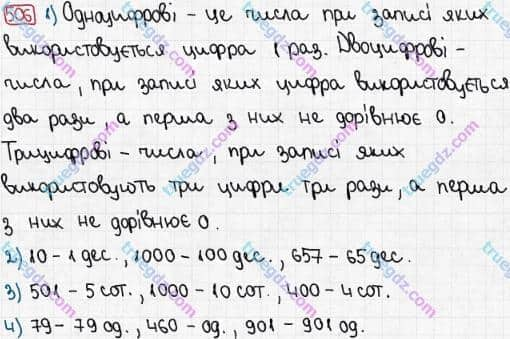 506 1) Одноцифрові – це числа при записі яких
використовується цифра 1 раз. Двоцифрові –
числа, при записі яких цифра використовується
два рази, а перша з них не дорівнює 0.
Трицифрові – числа, при записі яких
використовують три цифри три рази, а перша
з них не дорівнює 0.
2) 10 – 1 дес., 1000 – 100 дес., 657 – 65 дес.
3) 501 – 5 сот., 1000 – 10 сот., 400 – 4 сот.
4) 79 – 79 од., 460 – од., 901 – 901 од.
truegdz.com